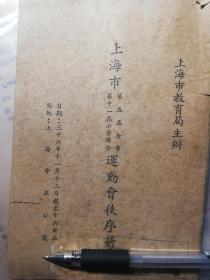 上海市教育局主辦
上海市 第五屆全市 第十一屆小學聯合 運動會秩序册
日期：三十六年十一月十二日起至十六日止
地點：上海市中正公園